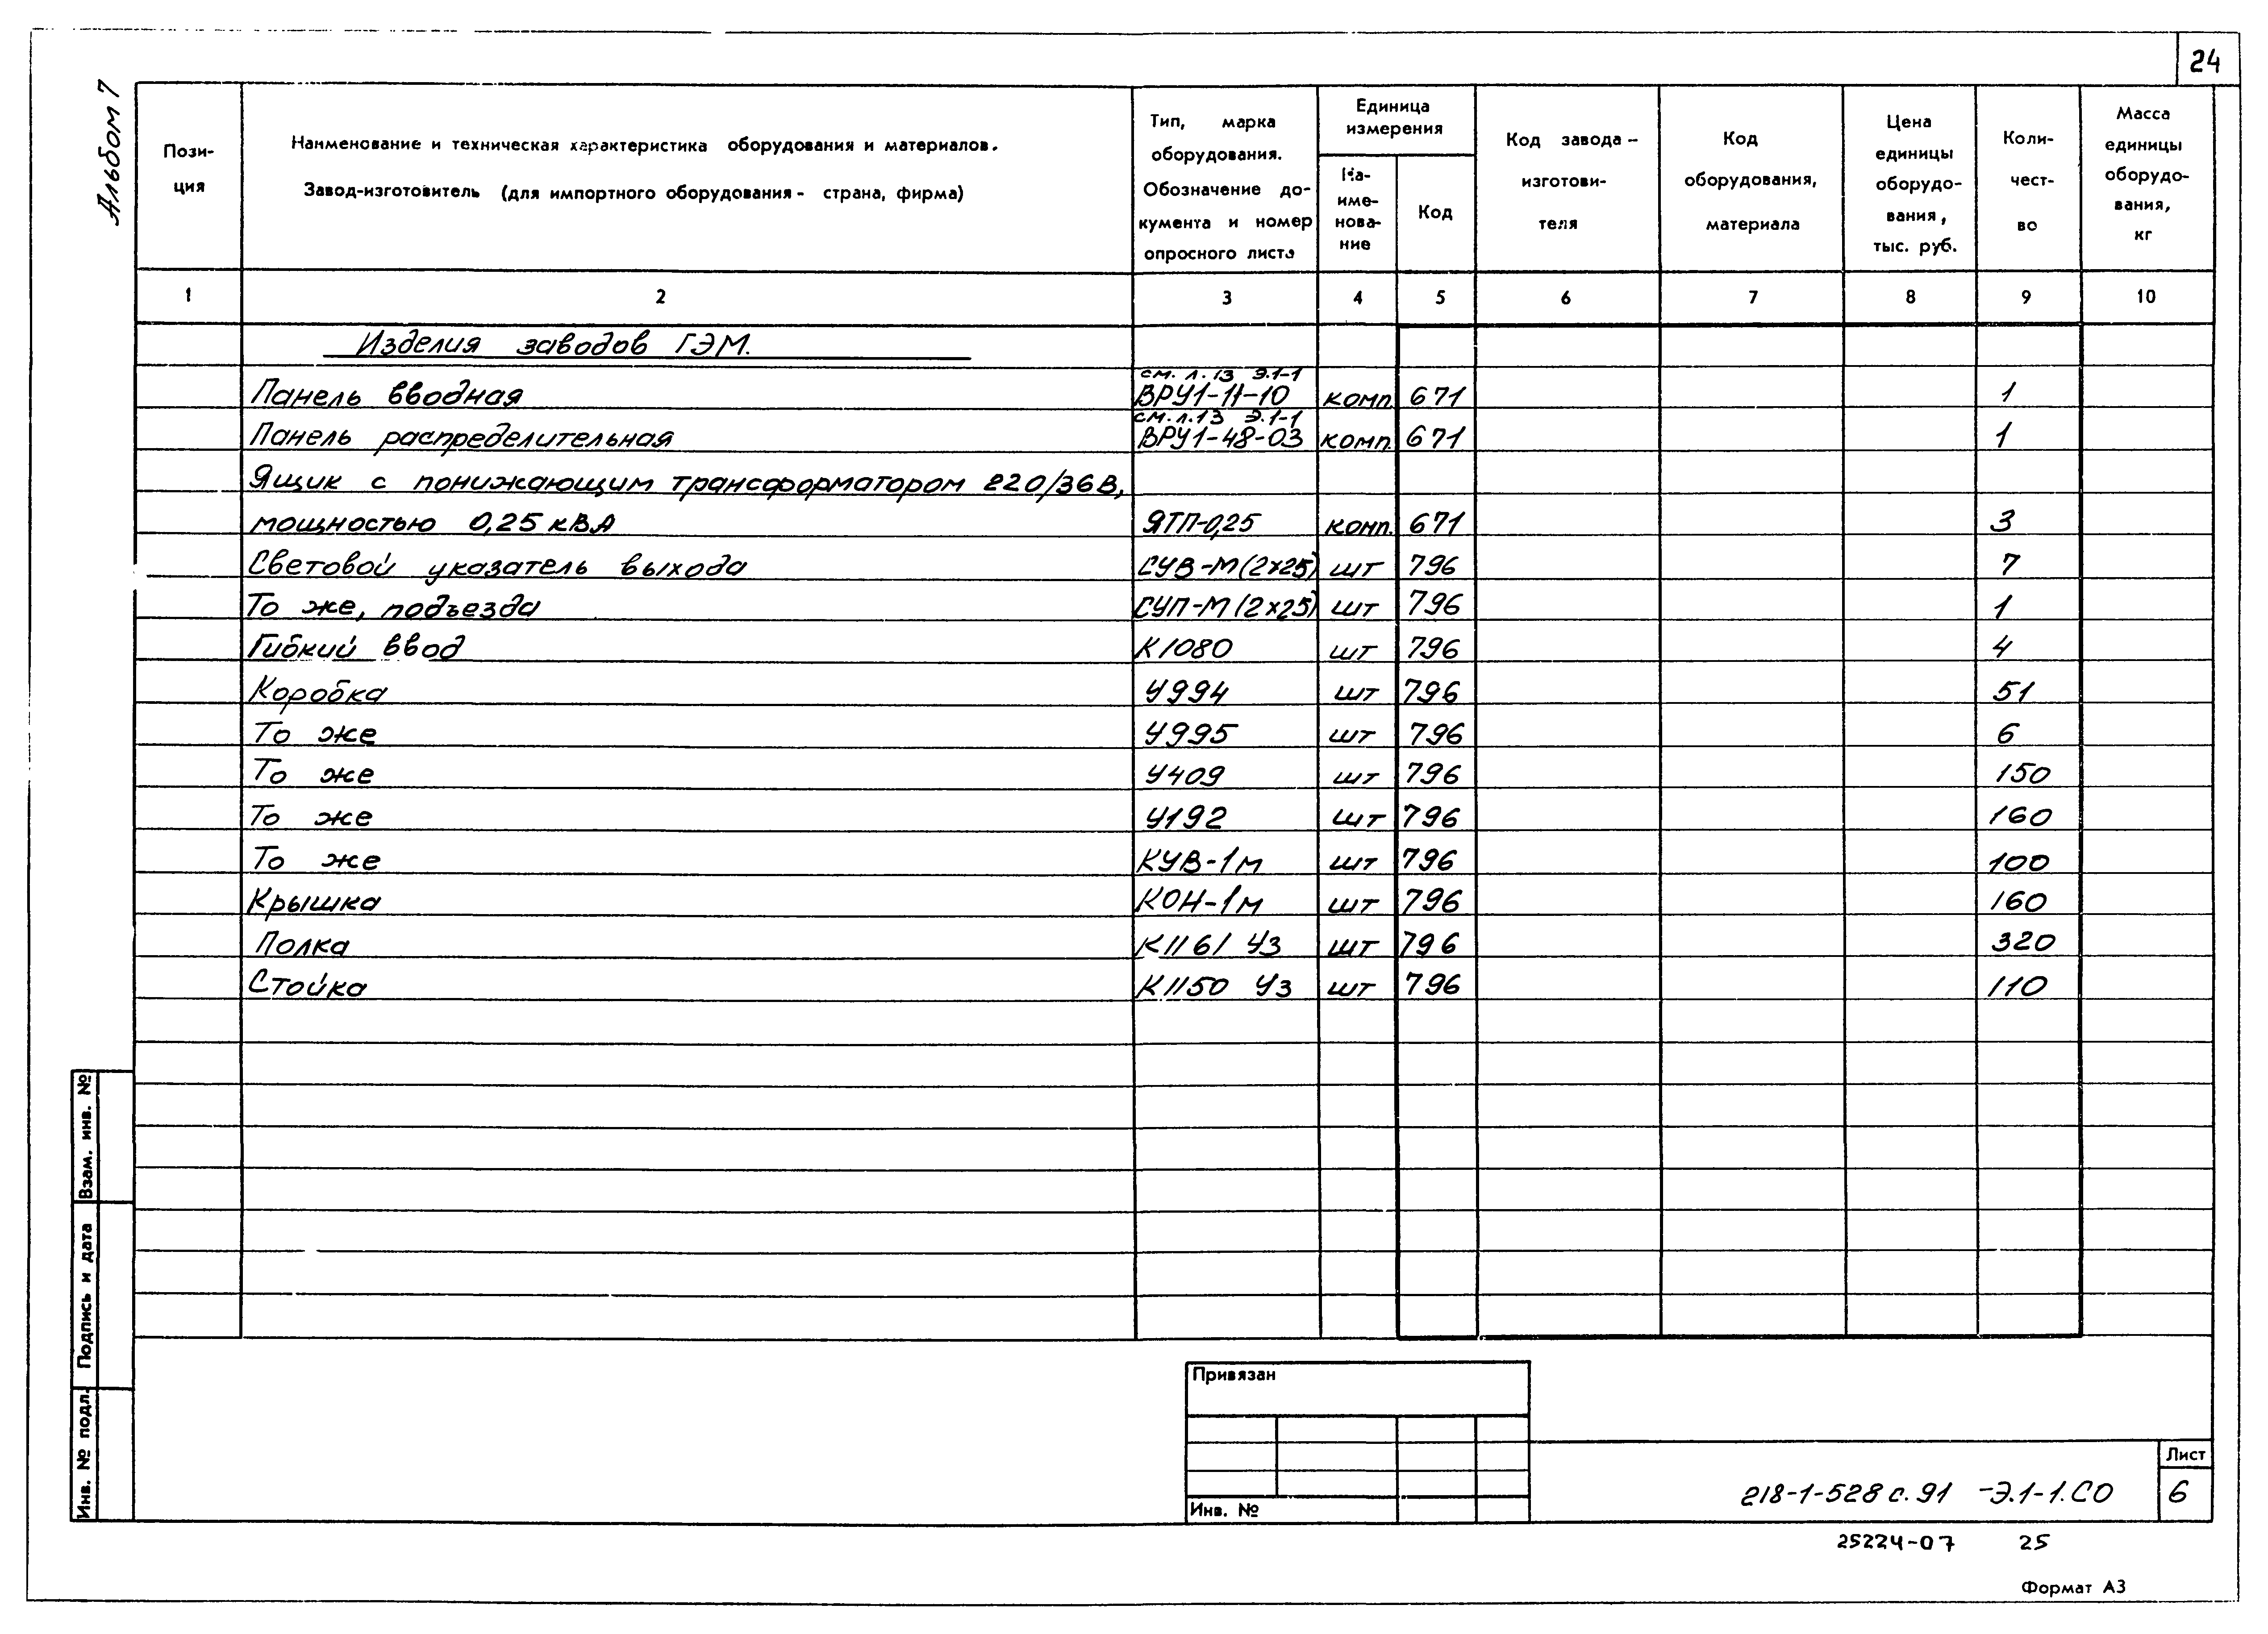 24
Альбом 7
Пози-
ция
Наименование и техническая характеристика оборудования и материалов.
Завод-изготовитель (для импортного оборудования - страна, фирма)
Тип, марка
оборудования.
Обозначение до-
кумента и номер
опросного листа
Единица
измерения
На-
име-
нова-
ние
Код
Код завода-
изготови-
теля
Код
оборудования,
материала
Цена
единицы
оборудо-
вания,
тыс. руб.
Коли-
чест-
во
Масса
единицы
оборудо-
вания,
кг
1 2 3 4 5 6 7 8 9 10
Изделия заводов ГЭМ.
см. л. 13 Э.1-1
Панель вводная ВРУ1-11-10 комп. 671 1
см. л. 13 Э.1-1
Панель распределительная ВРУ1-48-03 комп. 671 1
Ящик с понижающим трансформатором 220/36В,
мощностью 0,25 кВА ЯТП-0,25 комп. 671 3
Световой указатель выхода СУВ-М(2х25) шт 796 7
То же, подъезда СУП-М(2х25) шт 796 1
Гибкий ввод К1080 шт 796 4
Коробка У994 шт 796 51
То же У995 шт 796 6
То же У409 шт 796 150
То же У192 шт 796 160
То же КУВ-1м шт 796 100
Крышка КОН-1м шт 796 160
Полка К1161 У3 шт 796 320
Стойка К1150 У3 шт 796 110
Взам. инв. №
Подпись и дата
Инв. № подл.
Привязан
Инв. №
218-1-528 с.91 -Э.1-1.СО
Лист
6
25224-07 25
Формат А3